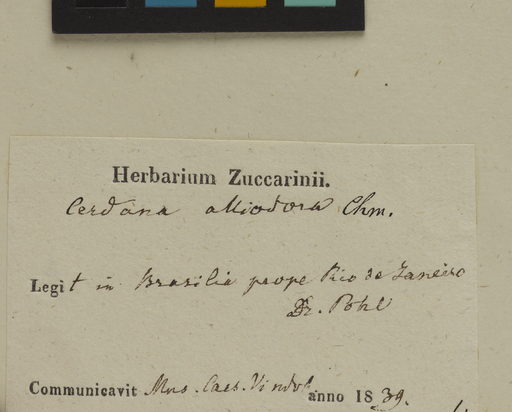 Herbarium Zuccarinii.
Cerdana alliodora Chm.
Legit in Brasilia prope Rio de Janeiro
Dr. Pohl
Communicavit Mus. Caes. Vindob. anno 1839.